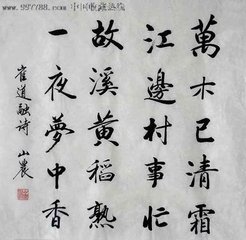 www.997788.com 中国收藏热线
萬木已清霜
江邊村事忙
故溪黄稻熟
一夜夢中香
崔道融诗 山農